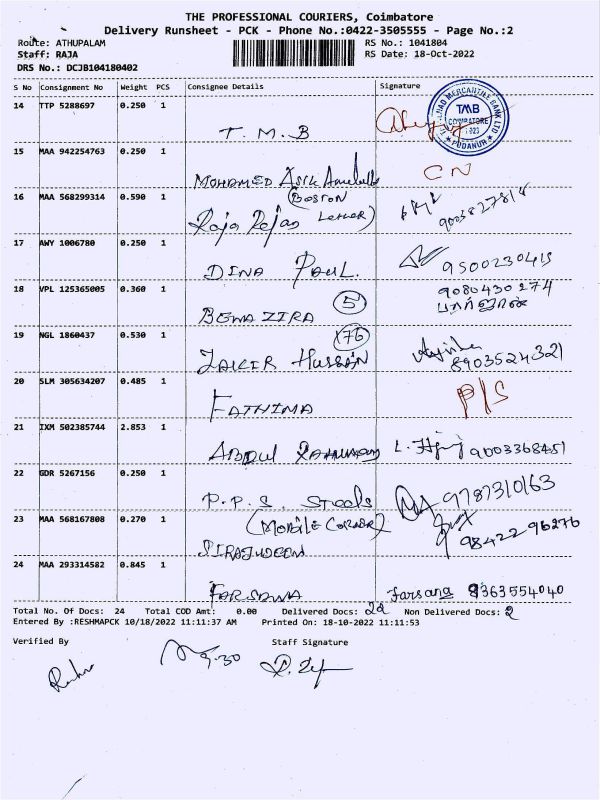 THE PROFESSIONAL COURIERS, Coimbatore
Delivery Runsheet - PCK - Phone No.:0422-3505555 - Page No.:2
Route: ATHUPALAM RS No.: 1041804
Staff: RAJA RS Date: 18-Oct-2022
DRS No.: DCJB104180402
S No Consignment No Weight PCS Consignee Details Signature
14 TTP 5288697 0.250 1 T. M. B
TAMILNAD MERCANTILE BANK LTD
TMB
COIMBATORE
PODANUR
15 MAA 942254763 0.250 1 MOHAMED ASIK CN
16 MAA 568299314 0.590 1 (BOSTON
Raja Rejas Lether)
17 AWY 1006780 0.250 1 DINA PAUL. 9500230415
18 VPL 125365005 0.360 1 BENAZIRA (5) 9080430274
19 NGL 1860437 0.530 1 (176)
ZAKIR HUSSAIN 8903524321
20 SLM 305634207 0.485 1 FATHIMA P/S
21 IXM 502385744 2.853 1 ABDUL RAHUMAN 9003368451
22 GDR 5267156 0.250 1 P.P.S. Steels 9787310163
23 MAA 568167808 0.270 1 (MOBILE CORNER)
SIRAJUDEEN 98422 96276
24 MAA 293314582 0.845 1 FARSANA Farsana 9363554040
Total No. Of Docs: 24 Total COD Amt: 0.00 Delivered Docs: 22 Non Delivered Docs: 2
Entered By :RESHMAPCK 10/18/2022 11:11:37 AM Printed On: 18-10-2022 11:11:53
Verified By Staff Signature
9.30